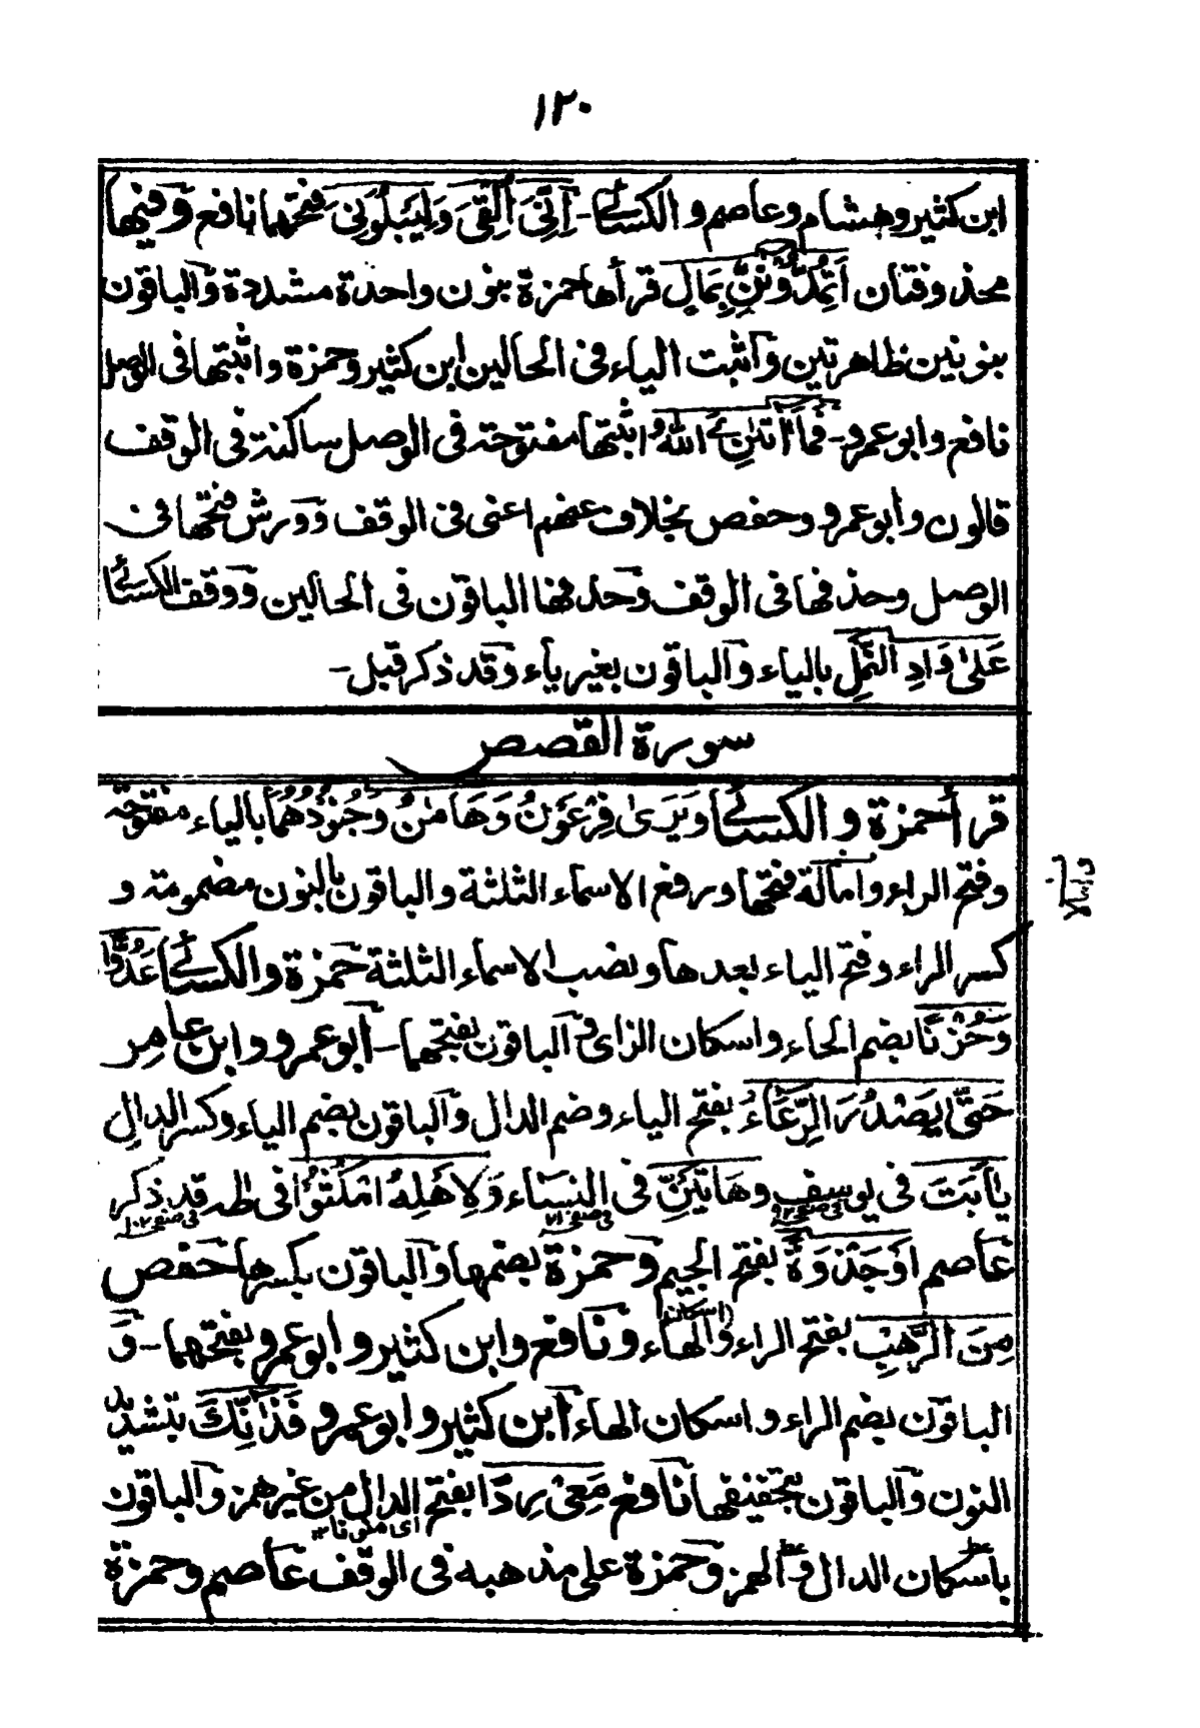 ١٢٠
ابن كثير وهشام وعاصم والكسائى - اِنِّىَ اُلْقِىَ وَ لِيَبْلُوَنِىَ فتحهما نافع وفيها
محذوفتان اَتُمِدُّوْنَنِ بِمَالٍ قرأها حمزة بنون واحدة مشددة والباقون
بنونين ظاهرتين واثبت الياء فى الحالين ابن كثير وحمزة واثبتها فى الوصل
نافع وابو عمرو - فَمَا اٰتٰنِ ئَ اللّٰهُ اثبتها مفتوحته فى الوصل ساكنة فى الوقف
قالون وابو عمرو وحفص بخلاف عنهم اعنى فى الوقف وورش فتحها فى
الوصل وحذفها فى الوقف وحذفها الباقون فى الحالين ووقف الكسائى
عَلىٰ وَادِ النَّمْلِ بالياء والباقون بغير ياء وقد ذكر قبل -
سورة القصص
قرأ حمزة والكسائى وَيَرىٰ فِرْعَوْنُ وَهَامٰنُ وَجُنُوْدُهُمَا بالياء مفتوحته
وفتح الراء وامالة فتحها ورفع الاسماء الثلثة والباقون بالنون مضمومته و
كسر الراء وفتح الياء بعدها ونصب الاسماء الثلثة حمزة والكسائى عَدُوًّا
وَحُزْنًا بضم الحاء واسكان الزاى والباقون بفتحهما - ابو عمرو وابن عامر
حَتّٰى يَصْدُرَ الرِّعَاءُ بفتح الياء وضم الدال والباقون بضم الياء وكسر الدال
يٰاَبَتَ فى يوسف وهَاتَيْنِّ فى النساء وَلِاَهْلِهُ امْكُثُوْا فى طه قد ذكر
فى صفحه فى صفحه ٧١ فى صفحه ١٠٢
عاصم اَوْ جَذْوَةٍ بفتح الجيم وحمزة بضمها والباقون بكسرها حفص
مِنَ الرَّهْبِ بفتح الراء و(اسكان) الهاء ونافع وابن كثير وابو عمرو بفتحهما - و
الباقون بضم الراء واسكان الهاء ابن كثير وابو عمرو فَذَانِّكَ بتشديد
النون والباقون بتخفيفها نافع مَعِىْ رِدًا بفتح الدال من غير همز والباقون
باسكان الدال والهمز وحمزة على مذهبه فى الوقف عاصم وحمزة